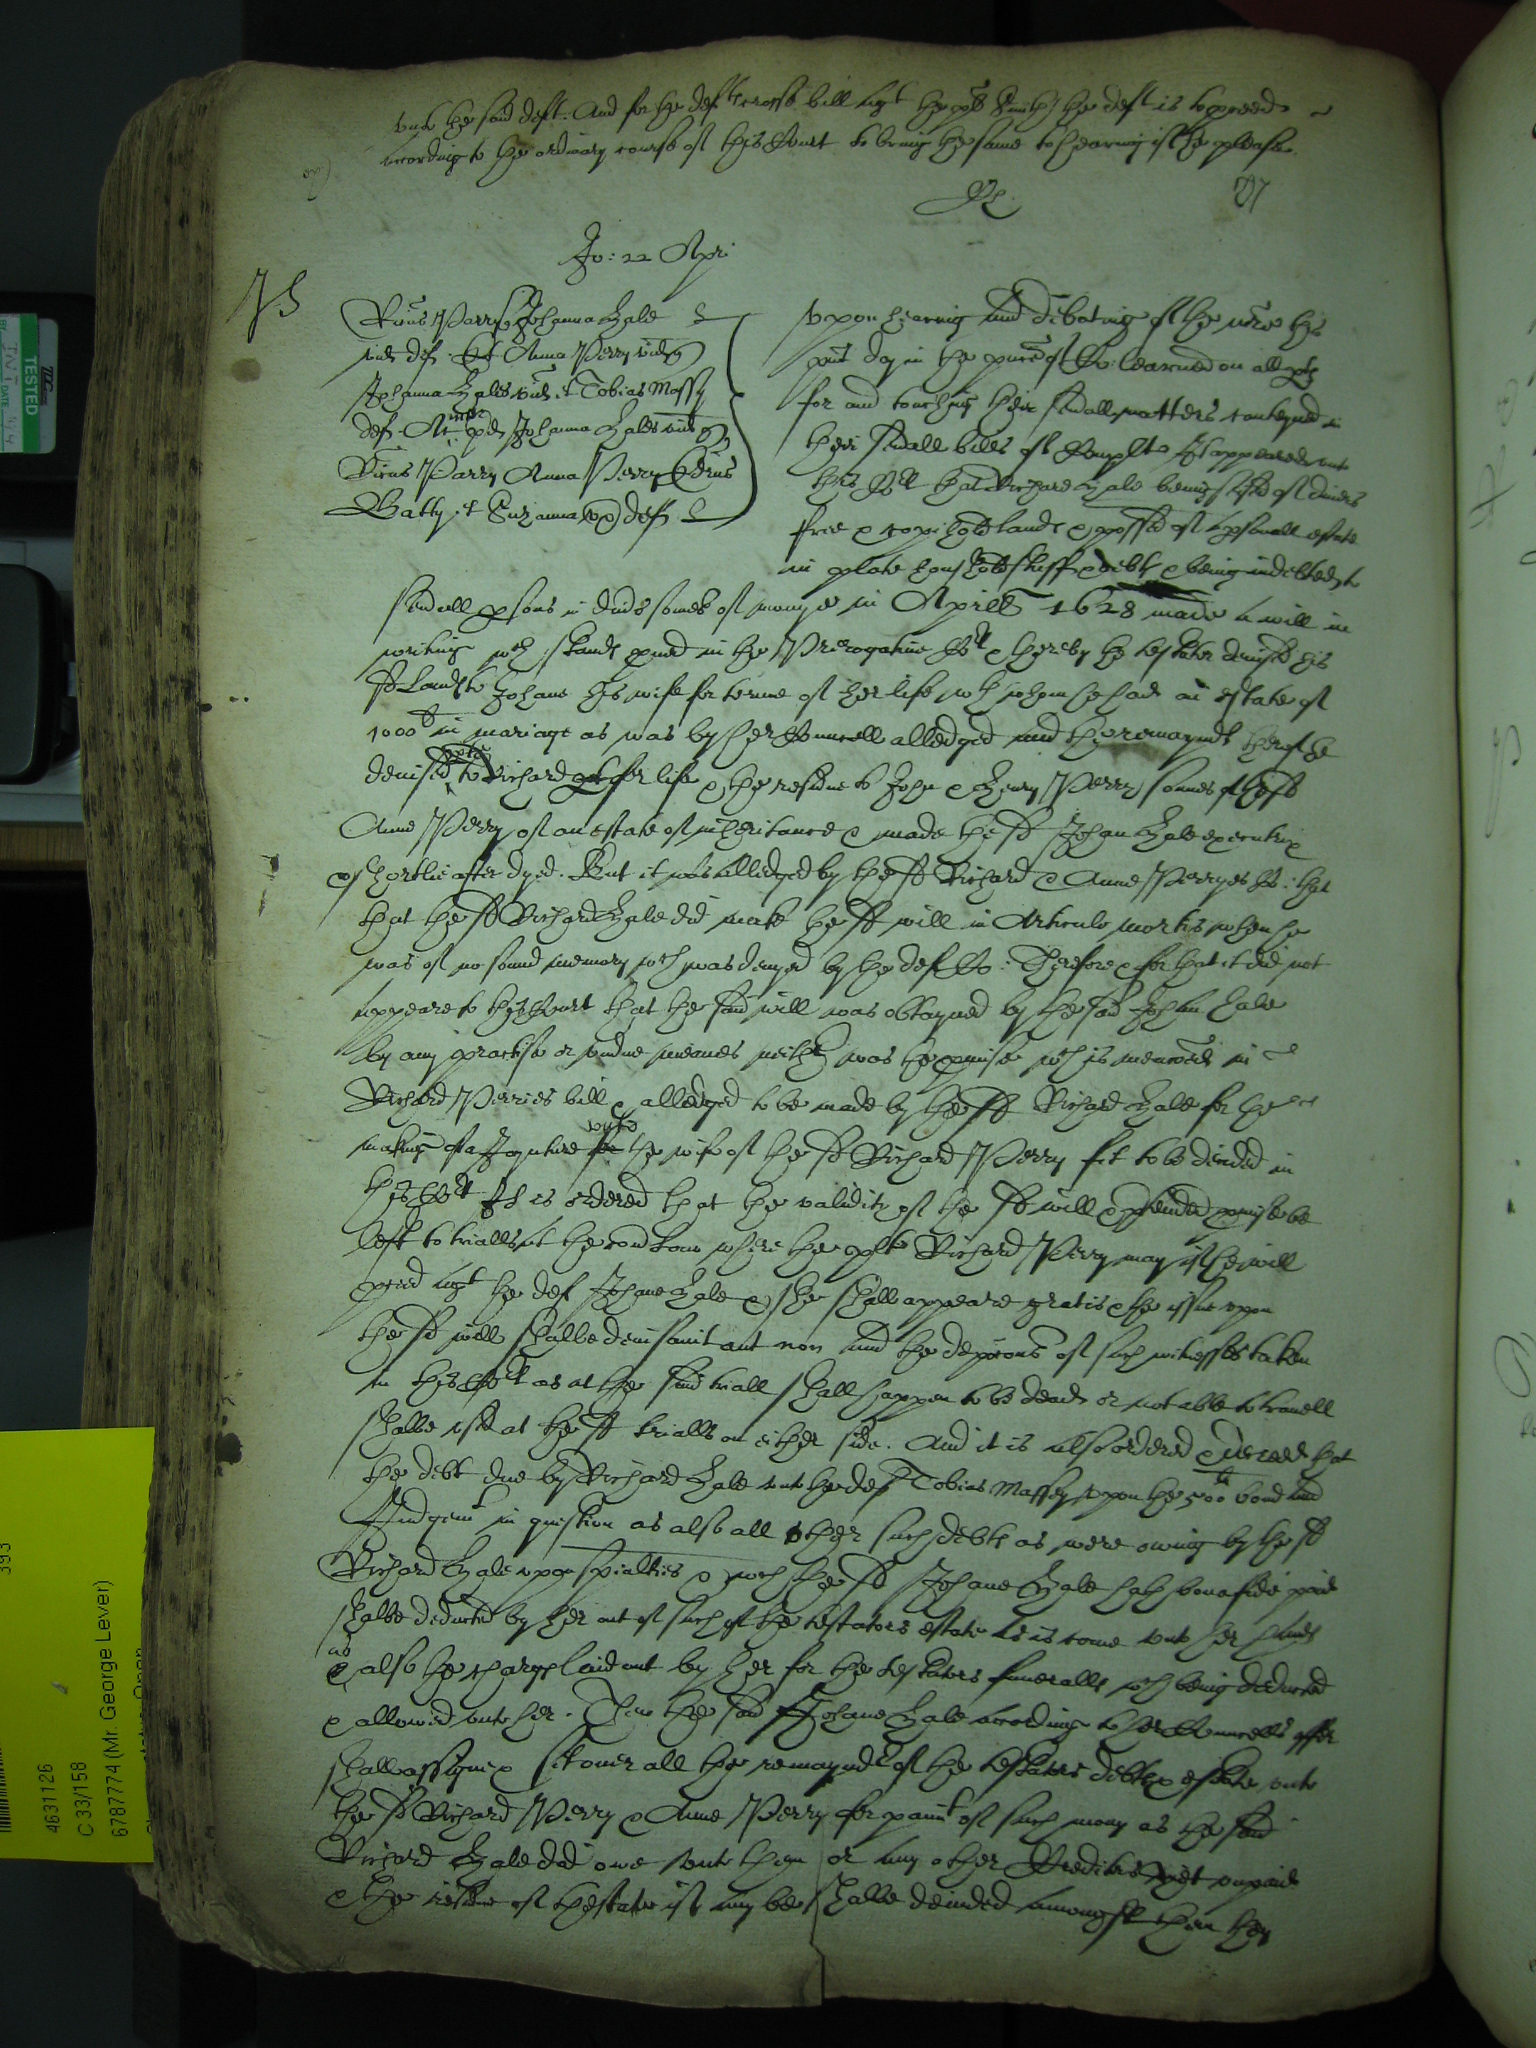 unto the said deft. And for the defts crosse bill agt the plt Smith the deft is to pceed
according to the ordinary course of this Court to bring the same to hearing if he please.
Jo: 22 Apri
Ricus Parry Johanna Hale
vid def. Et Anna Perry vid
Johanna Hales vid et Tobias Massy
def. Johanna Hales vid
Ricus Parry Anna Perry
Batty et Suzanna def
Upon hearing and debating of the this
pnt day in the of Co: learned on all pts
for and touching their sevall matters conteyned in
their sevall bills of Complt It appeared unto
this Cort that Richard Hale being seised of divers
free & copihold lands & possed of a psonall estate
in plate houshold stuffe debts & being indebted to
sevall psons in divs somes of money in Aprill 1628 made a will in
writing wch stands pved in the Prerogative Cort & thereby the testator devised his
sd Lands to Johane his wife for terme of her life wth whom he had an estate of
1000li in mariage as was by her Councell alledged and the remaynder thereof he
devised to Richard for life & the residue to John & Henry Perry sonnes of the sd
Anne Perry of an estate of inheritance & made the sd Johan Hale executrix
& shortlie after dyed. But it was alledged by the sd Richard & Anne Perryes Co: that
that the sd Richard Hale did make the sd will in Articulo mortis when he
was of no sound memory wch was denyed by the defts Co: Therefore & for that it did not
appeare to this Court that the said will was obtayned by the said Johan Hale
by any practise or undue meanes neither was the pmise wch is menconed in
Richard Perries bill & alledged to be made by the sd Richard Hale for the
making of a Joynture unto the wife of the sd Richard Perry fit to be decided in
this Cort It is ordered that the validity of the sd will & ptended pmise be
left to trialls at the comon Law where the plt Richard Perry may if he will
pceed agt the def Johane Hale & she shall appeare gratis & the issue upon
the sd will shalbe devisavit aut non and the deposicons of such witnesses taken
in this Cort as at the said triall shall happen to be dead or not able to travell
shalbe used at the sd trialls on either side. And it is also ordered & decreed that
the debt due by Richard Hale unto the def Tobias Massey upon the 500li bond and
Judgemt in question as also all other such debts as were owing by the sd
Richard Hale upon spialties & wch the sd Johane Hale hath bona fide paid
shalbe deducted by her out of such of the testators estate as is come unto her hands
as
& also the charge laid out by her for the testators funeralls wch being deducted
& allowed unto her. Then the said Johane Hale according to her Councells offer
shall assigne & set over all the remaynder of the testators debts & estate unto
the sd Richard Perry & Anne Perry for paimt of such mony as the said
Richard Hale did owe unto them or any other Creditors yet unpaid
& the residue of the estate if any be shalbe devided amongst them they
TESTED
393
4631126
C 33/158
6787774 (Mr. George Lever)